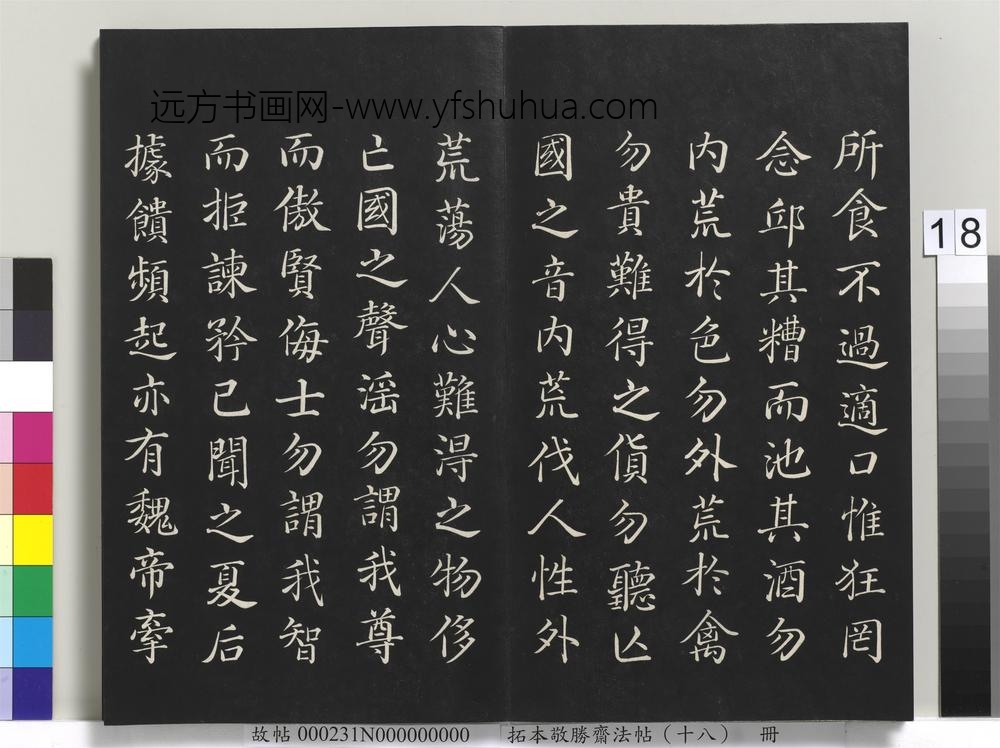 远方书画网-www.yfshuhua.com
所食不過適口惟狂罔
念邱其糟而池其酒勿
内荒於色勿外荒於禽
勿貴難得之貨勿聽亾
國之音内荒伐人性外
荒蕩人心難淂之物侈
亡國之聲滛勿謂我尊
而傲賢侮士勿謂我智
而拒諫矜已聞之夏后
據饋頻起亦有魏帝牽
18
故帖 000231N000000000 拓本敬勝齋法帖（十八） 冊